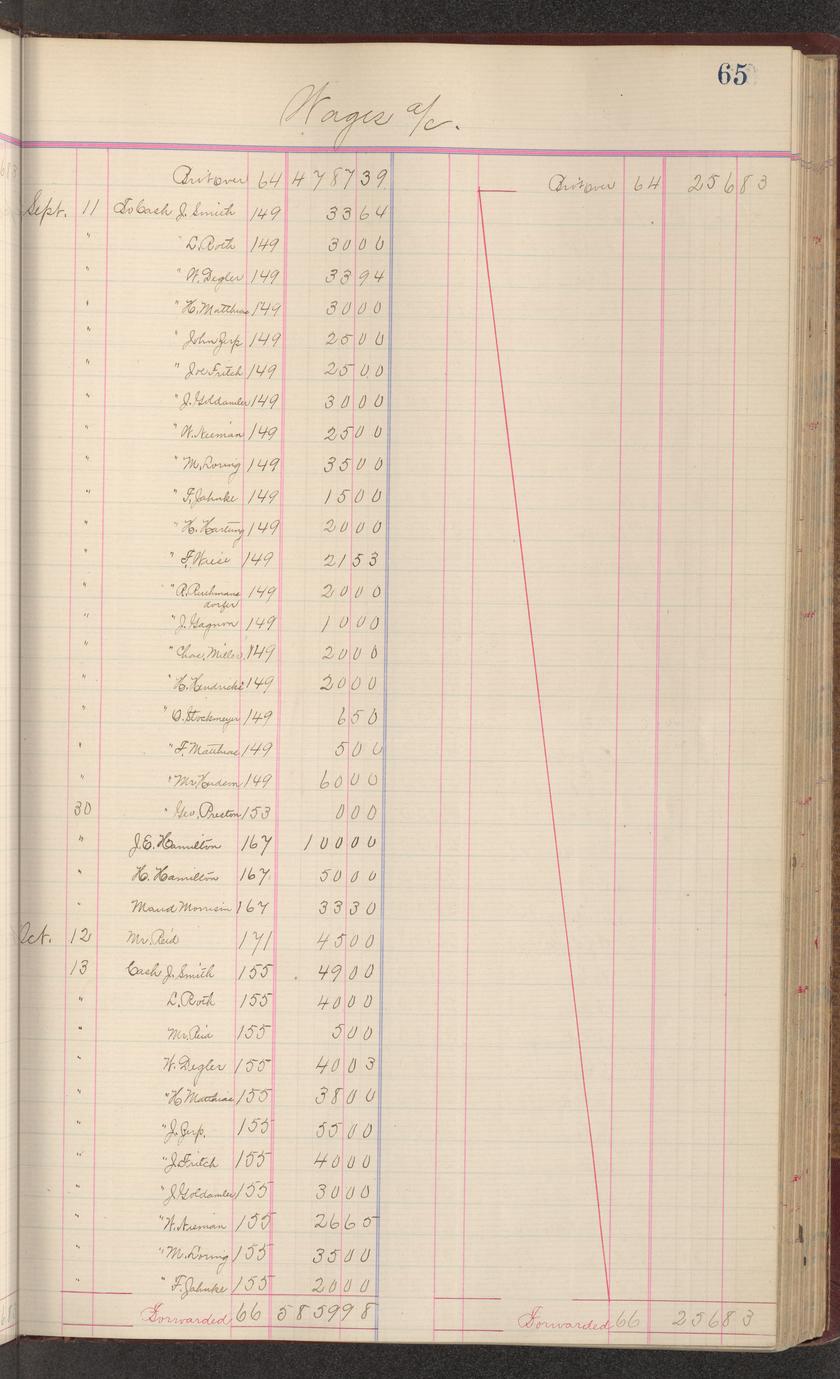 65
Wages a/c.
Brot over 64 4787 39 Brot over 64 256 83
Sept. 11 To Cash J. Smith 149 33 64
" " L. Roth 149 30 00
" " W. Degler 149 33 94
" " H. Matthias 149 30 00
" " John Zerp 149 25 00
" " Joe Fritch 149 25 00
" " J. Goldamler 149 30 00
" " W. Nieman 149 25 00
" " M. Loring 149 35 00
" " F. Jahnke 149 15 00
" " H. Hartung 149 20 00
" " F. Weise 149 21 53
" " R. 149 20 00
dorfer
" " J. Gagnon 149 10 00
" " Chas. Miller 149 20 00
" " H. Hendricks 149 20 00
" " O. Stockmeyer 149 6 50
" " F. Matthias 149 5 00
" " Mr 149 60 00
30 " Geo. Preston 153 0 00
" J. E. Hamilton 167 100 00
" H. Hamilton 167 50 00
" Maud Morrisin 167 33 30
Oct. 12 Mr. Reid 171 45 00
13 Cash J. Smith 155 49 00
" L. Roth 155 40 00
" Mr. Reid 155 5 00
" W. Degler 155 40 03
" " H Matthias 155 38 00
" " J. Zerp. 155 55 00
" " J. Fritch 155 40 00
" " J Goldamler 155 30 00
" " W. Nieman 155 26 65
" " M. Loring 155 35 00
" " F. Jahnke 155 20 00
Forwarded 66 5859 98 Forwarded 66 256 83